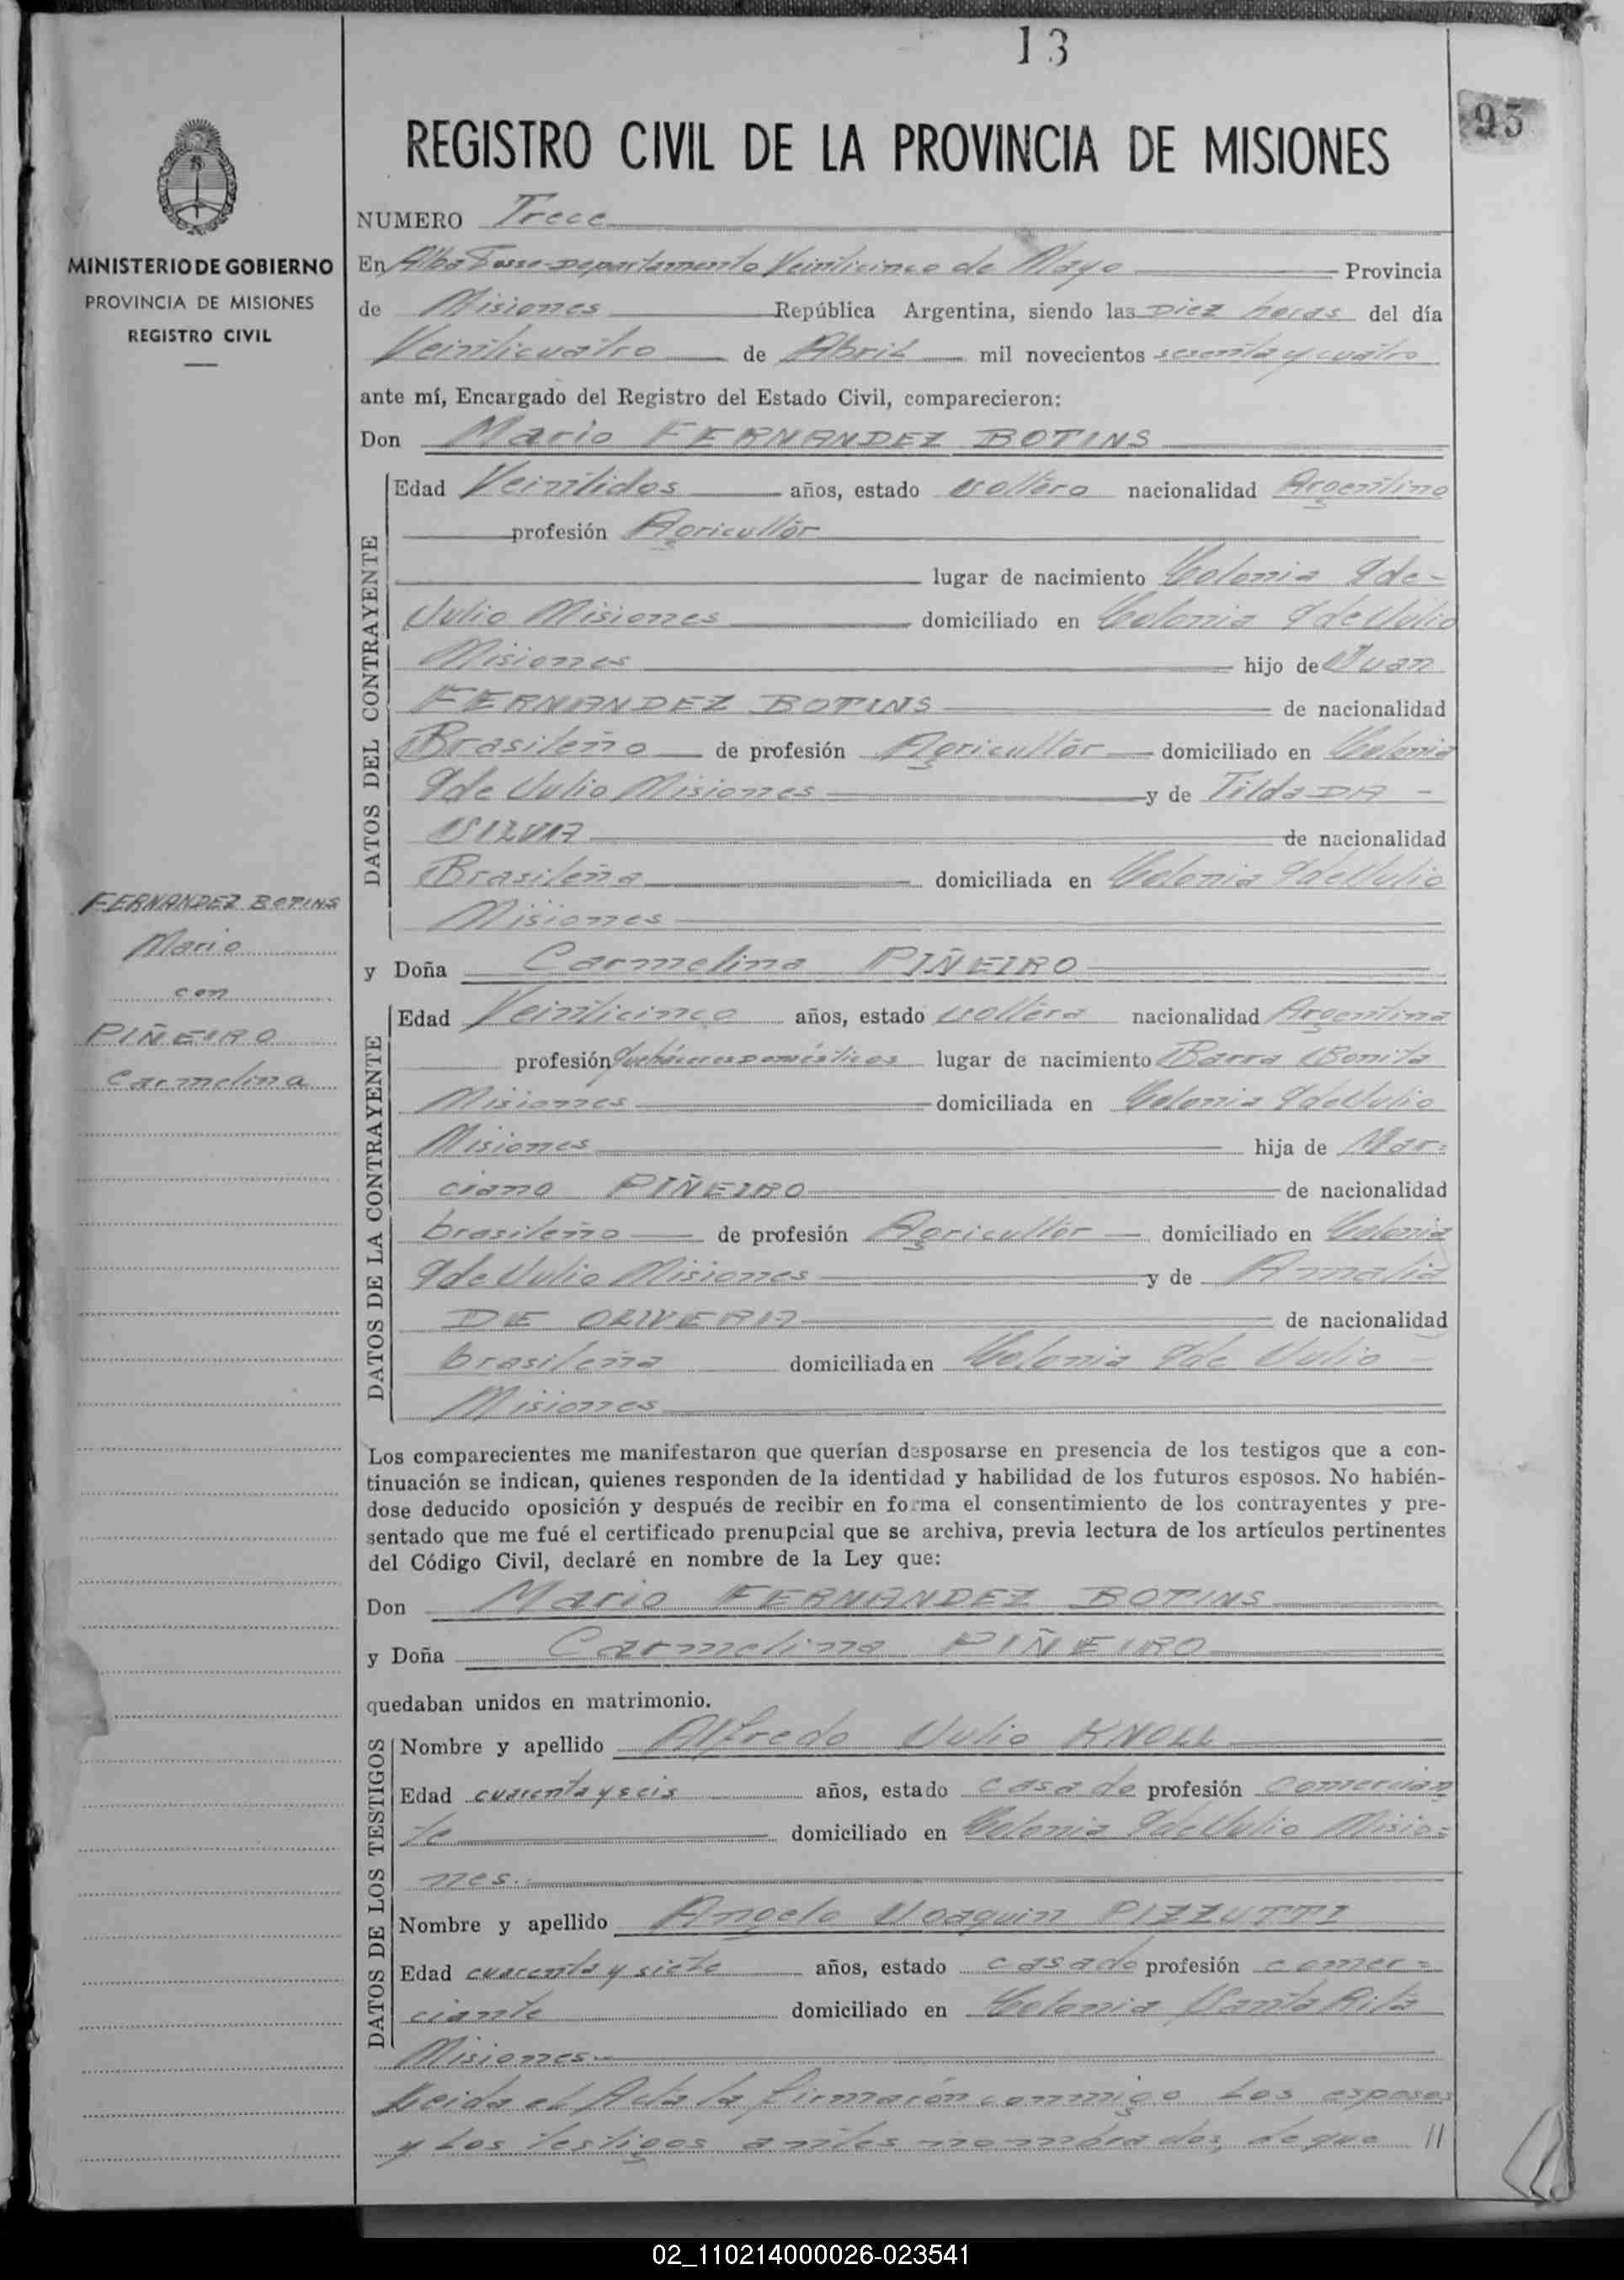 13
95
REGISTRO CIVIL DE LA PROVINCIA DE MISIONES
MINISTERIO DE GOBIERNO
PROVINCIA DE MISIONES
REGISTRO CIVIL
NUMERO Trece
En Alba Posse Departamento Veinticinco de Mayo Provincia
de Misiones República Argentina, siendo las Diez horas del día
Veinticuatro de Abril mil novecientos sesenta y cuatro
ante mí, Encargado del Registro del Estado Civil, comparecieron:
Don Mario FERNANDEZ BOTINS
DATOS DEL CONTRAYENTE
Edad Veintidos años, estado soltero nacionalidad Argentino
profesión Agricultor
lugar de nacimiento Colonia 9 de-
Julio Misiones domiciliado en Colonia 9 de Julio
Misiones hijo de Juan
FERNANDEZ BOTINS de nacionalidad
Brasileño de profesión Agricultor domiciliado en Colonia
9 de Julio Misiones y de Tilda DA -
SILVA de nacionalidad
Brasileña domiciliada en Colonia 9 de Julio
Misiones
FERNANDEZ BOTINS
Mario
con
PIÑEIRO
Carmelina
y Doña Carmelina PIÑEIRO
DATOS DE LA CONTRAYENTE
Edad Veinticinco años, estado soltera nacionalidad Argentina
profesión Quehaceres domésticos lugar de nacimiento Barra Bonita
Misiones domiciliada en Colonia 9 de Julio
Misiones hija de Mar=
ciano PIÑEIRO de nacionalidad
brasileño de profesión Agricultor domiciliado en Colonia
9 de Julio Misiones y de Amalia
DE OLIVERA de nacionalidad
brasileña domiciliada en Colonia 9 de Julio -
Misiones
Los comparecientes me manifestaron que querían desposarse en presencia de los testigos que a con-
tinuación se indican, quienes responden de la identidad y habilidad de los futuros esposos. No habién-
dose deducido oposición y después de recibir en forma el consentimiento de los contrayentes y pre-
sentado que me fué el certificado prenupcial que se archiva, previa lectura de los artículos pertinentes
del Código Civil, declaré en nombre de la Ley que:
Don Mario FERNANDEZ BOTINS
y Doña Carmelina PIÑEIRO
quedaban unidos en matrimonio.
DATOS DE LOS TESTIGOS
Nombre y apellido Alfredo Julio KNOLL
Edad cuarenta y seis años, estado casado profesión Comercian
te domiciliado en Colonia 9 de Julio Misio=
nes.
Nombre y apellido Angelo Joaquin PIZZUTTI
Edad cuarenta y siete años, estado casado profesión comer=
ciante domiciliado en Colonia Santa Rita
Misiones
Leida el Acta la firmarón conmigo Los esposos
y Los testigos antes nombrados, de que //
02_110214000026-023541